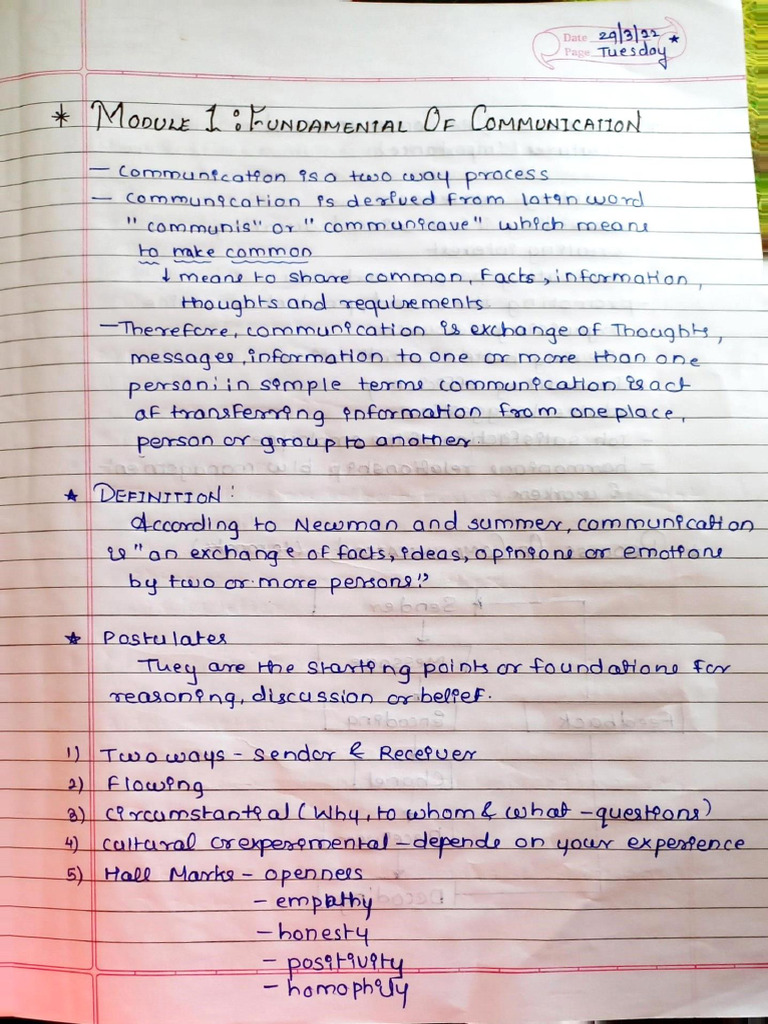 Date 29/3/22 ★
Page Tuesday
* MODULE 1 : FUNDAMENTAL OF COMMUNICATION
- Communication is a two way process
- communication is derived from latin word
"communis" or "communicave" which means
to make common
↓ means to share common, facts, information,
thoughts and requirements
- Therefore, communication is exchange of Thoughts,
messages, information to one or more than one
person; in simple terms communication is act
of transferring information from one place,
person or group to another.
★ DEFINITION:
According to Newman and summer, communication
is "an exchange of facts, ideas, opinions or emotions
by two or more persons"
★ Postulates
They are the starting points or foundations for
reasoning, discussion or belief.
1) Two ways - sender & Receiver
2) Flowing
3) circumstantial (Why, to whom & what - questions)
4) cultural or experemental - depends on your experience
5) Hall Marks - openness
- empathy
- honesty
- positivity
- homophily